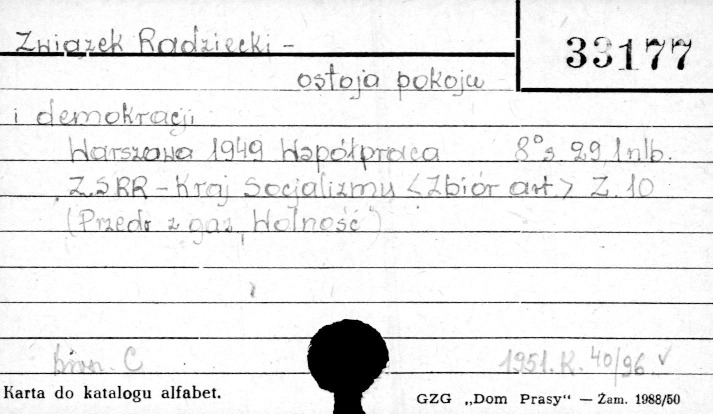 Związek Radziecki -
33177
ostoja pokoju
i demokracji
Warszawa 1949 Współpraca 8° s. 29, 1 nlb.
Z.S.R.R - Kraj Socjalizmu <Zbiór art.> Z. 10
(Przedr z gaz „Wolność")
C 1951. K. 40/96 v
Karta do katalogu alfabet.
GZG „Dom Prasy“ — Żam. 1988/50